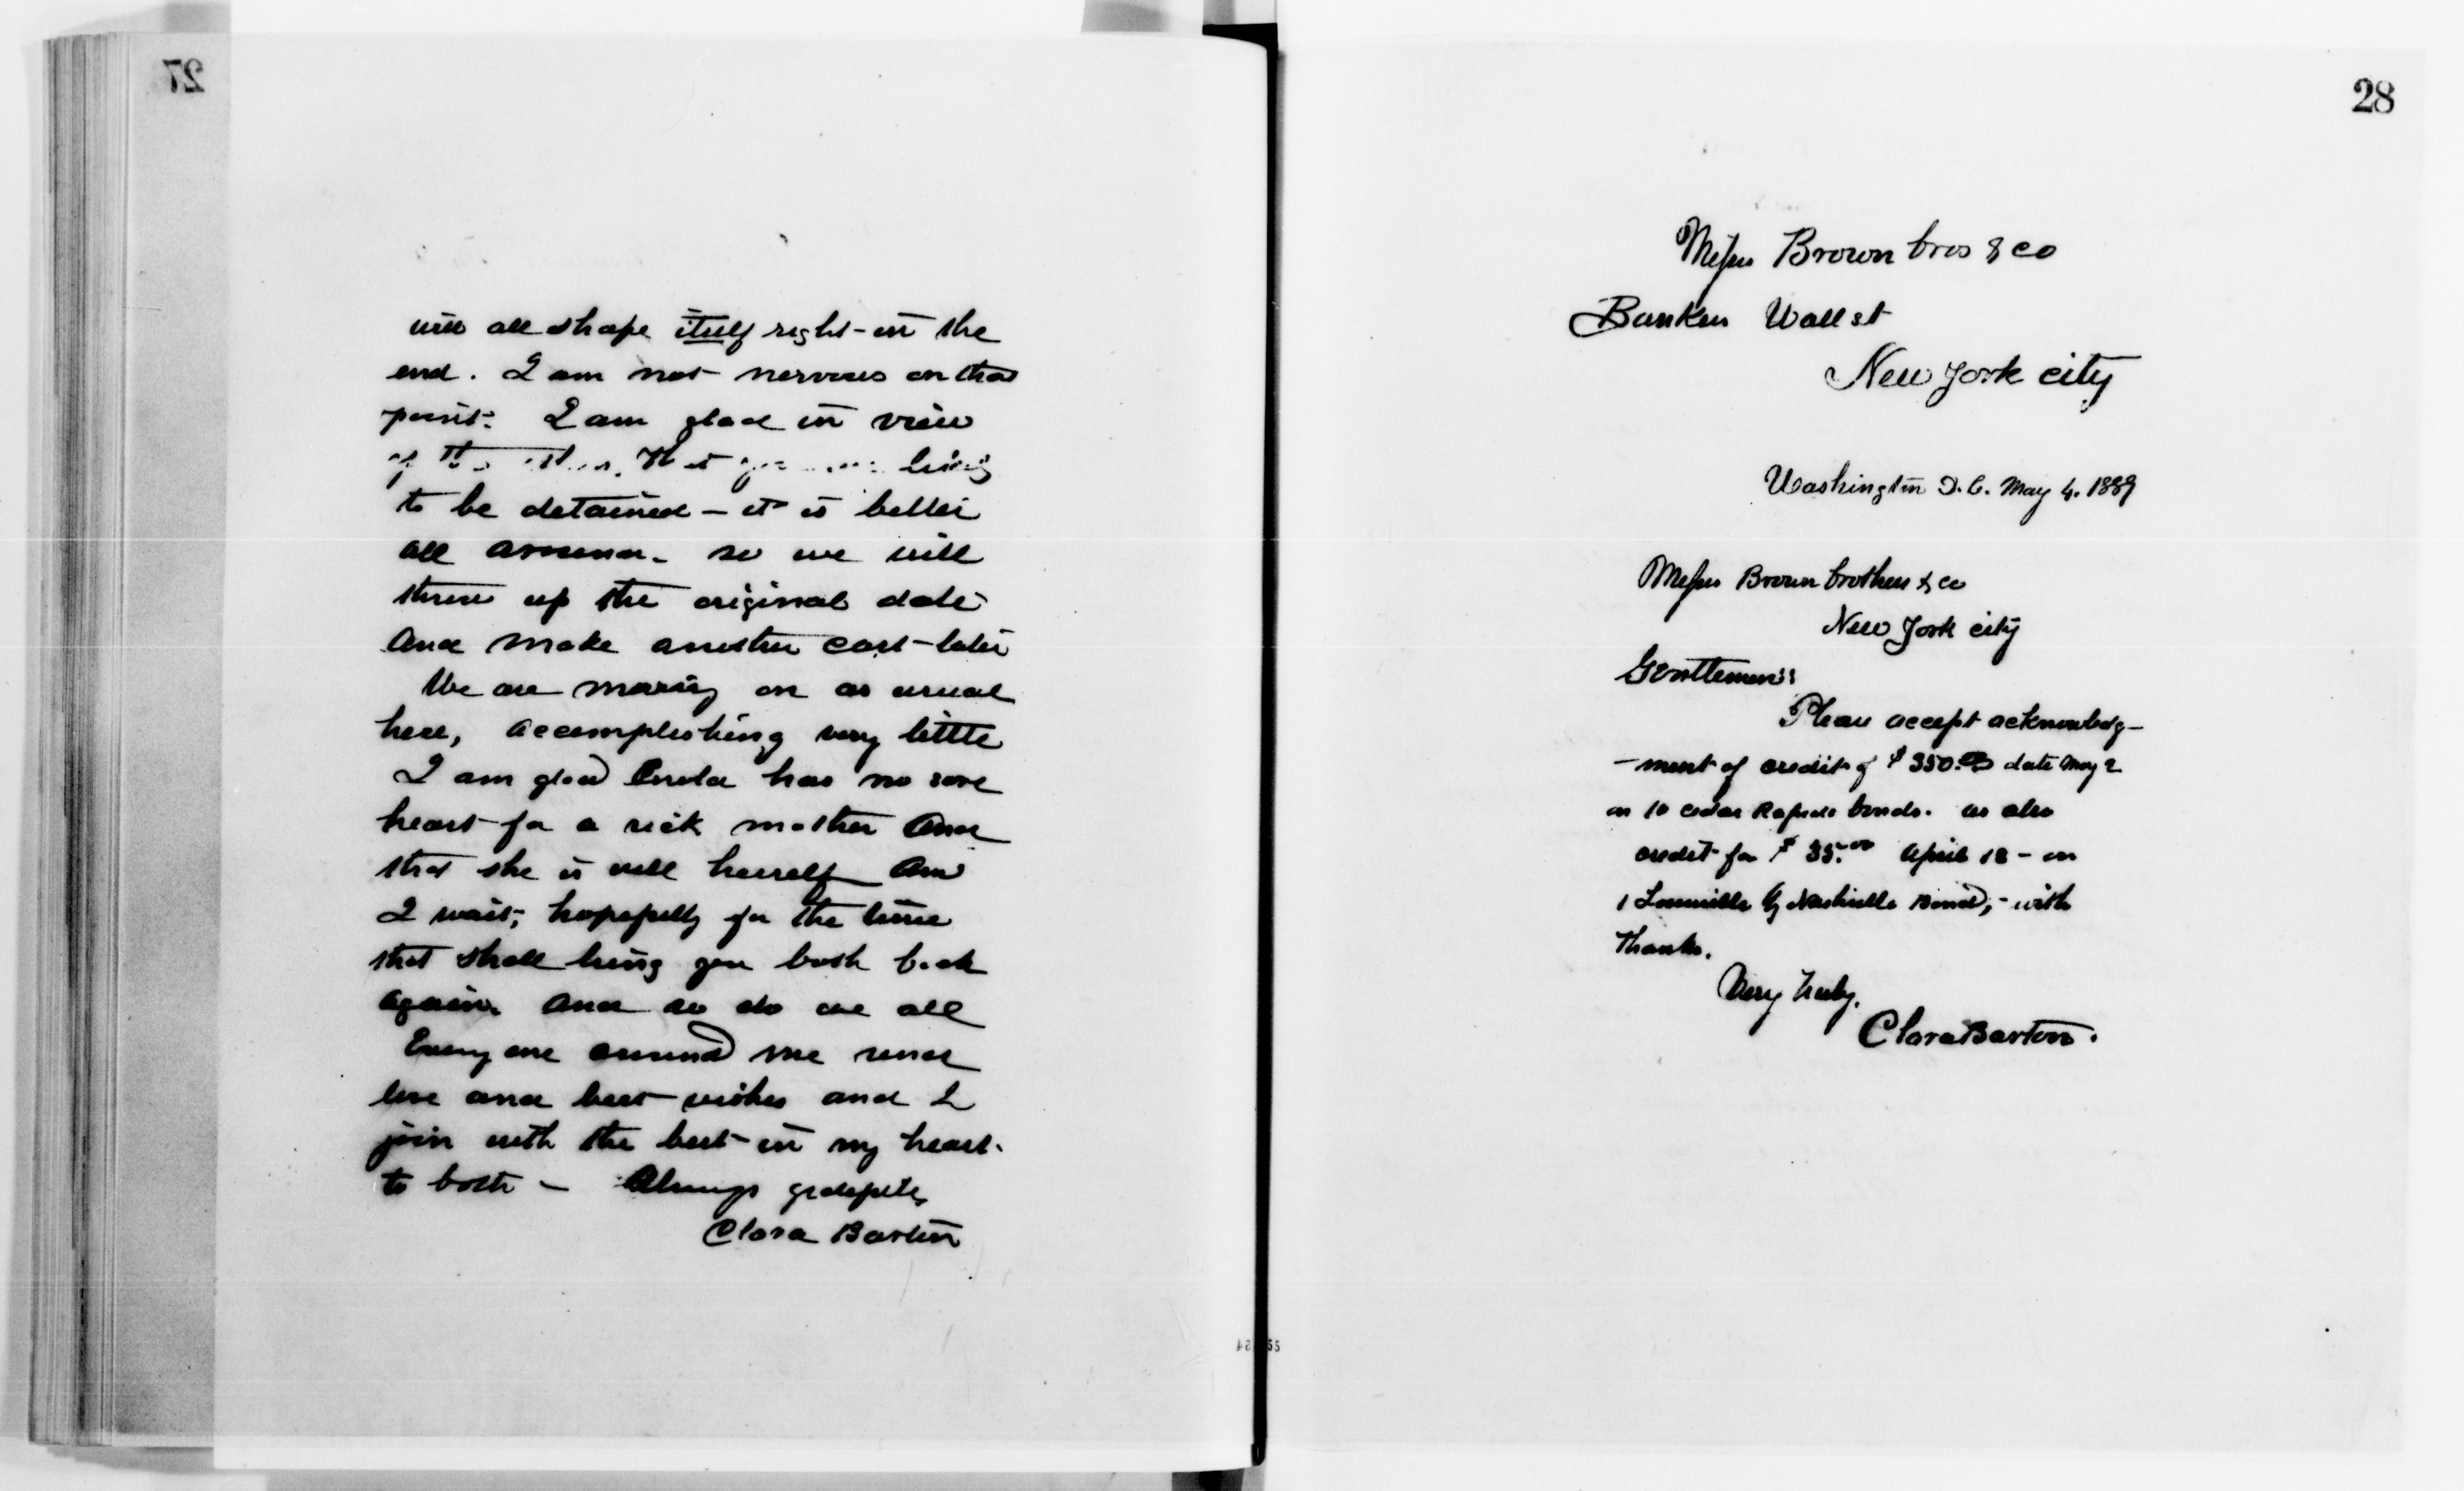 27
will all shape itself right - in the
end. I am not nervous on that
point. I am glad in view
of the that you
to be detained - it is better
all around. so we will
throw up the original date
And make another cast - later
We are moving on as usual
here, accomplishing very little
I am glad Enola has no sore
heart for a sick mother And
that she is well herself And
I wait, hopefully for the time
that shall bring you both back
again. And so do we all
Every one around me send
love and best wishes and I
join with the best in my heart.
to both - Always gratefully
Clara Barton
28
Messrs Brown bros & co
Bankers Wall st
New York city
Washington D.C. May 4. 1889
Messrs Brown brothers & co
New York city
Gentlemen:
Please accept acknowledg-
-ment of credit of $350.00 date May 2
on 10 cedar Rapids bonds. as also
credit for $35.00 April 12 - on
1 Louisville & Nashville Bond, - with
Thanks.
Very truly,
Clara Barton.
54
55